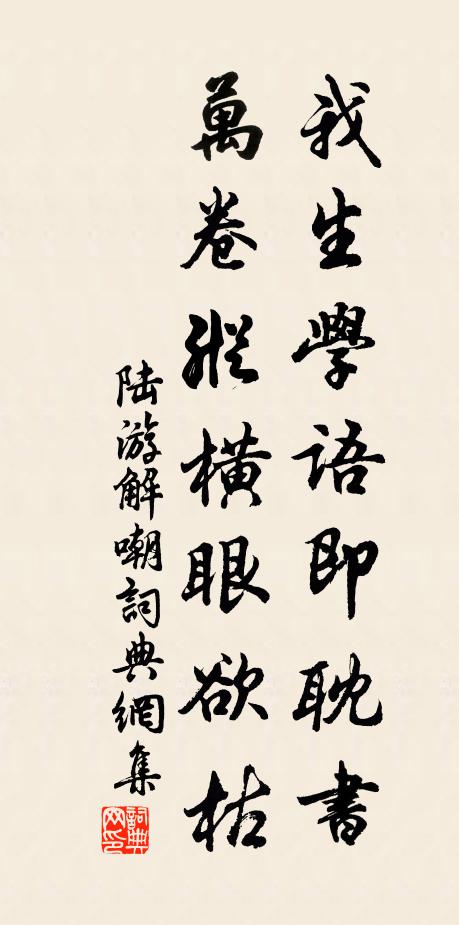 我生學語即耽書
萬卷縱橫眼欲枯
陸游解嘲詞典網集
詞典网印